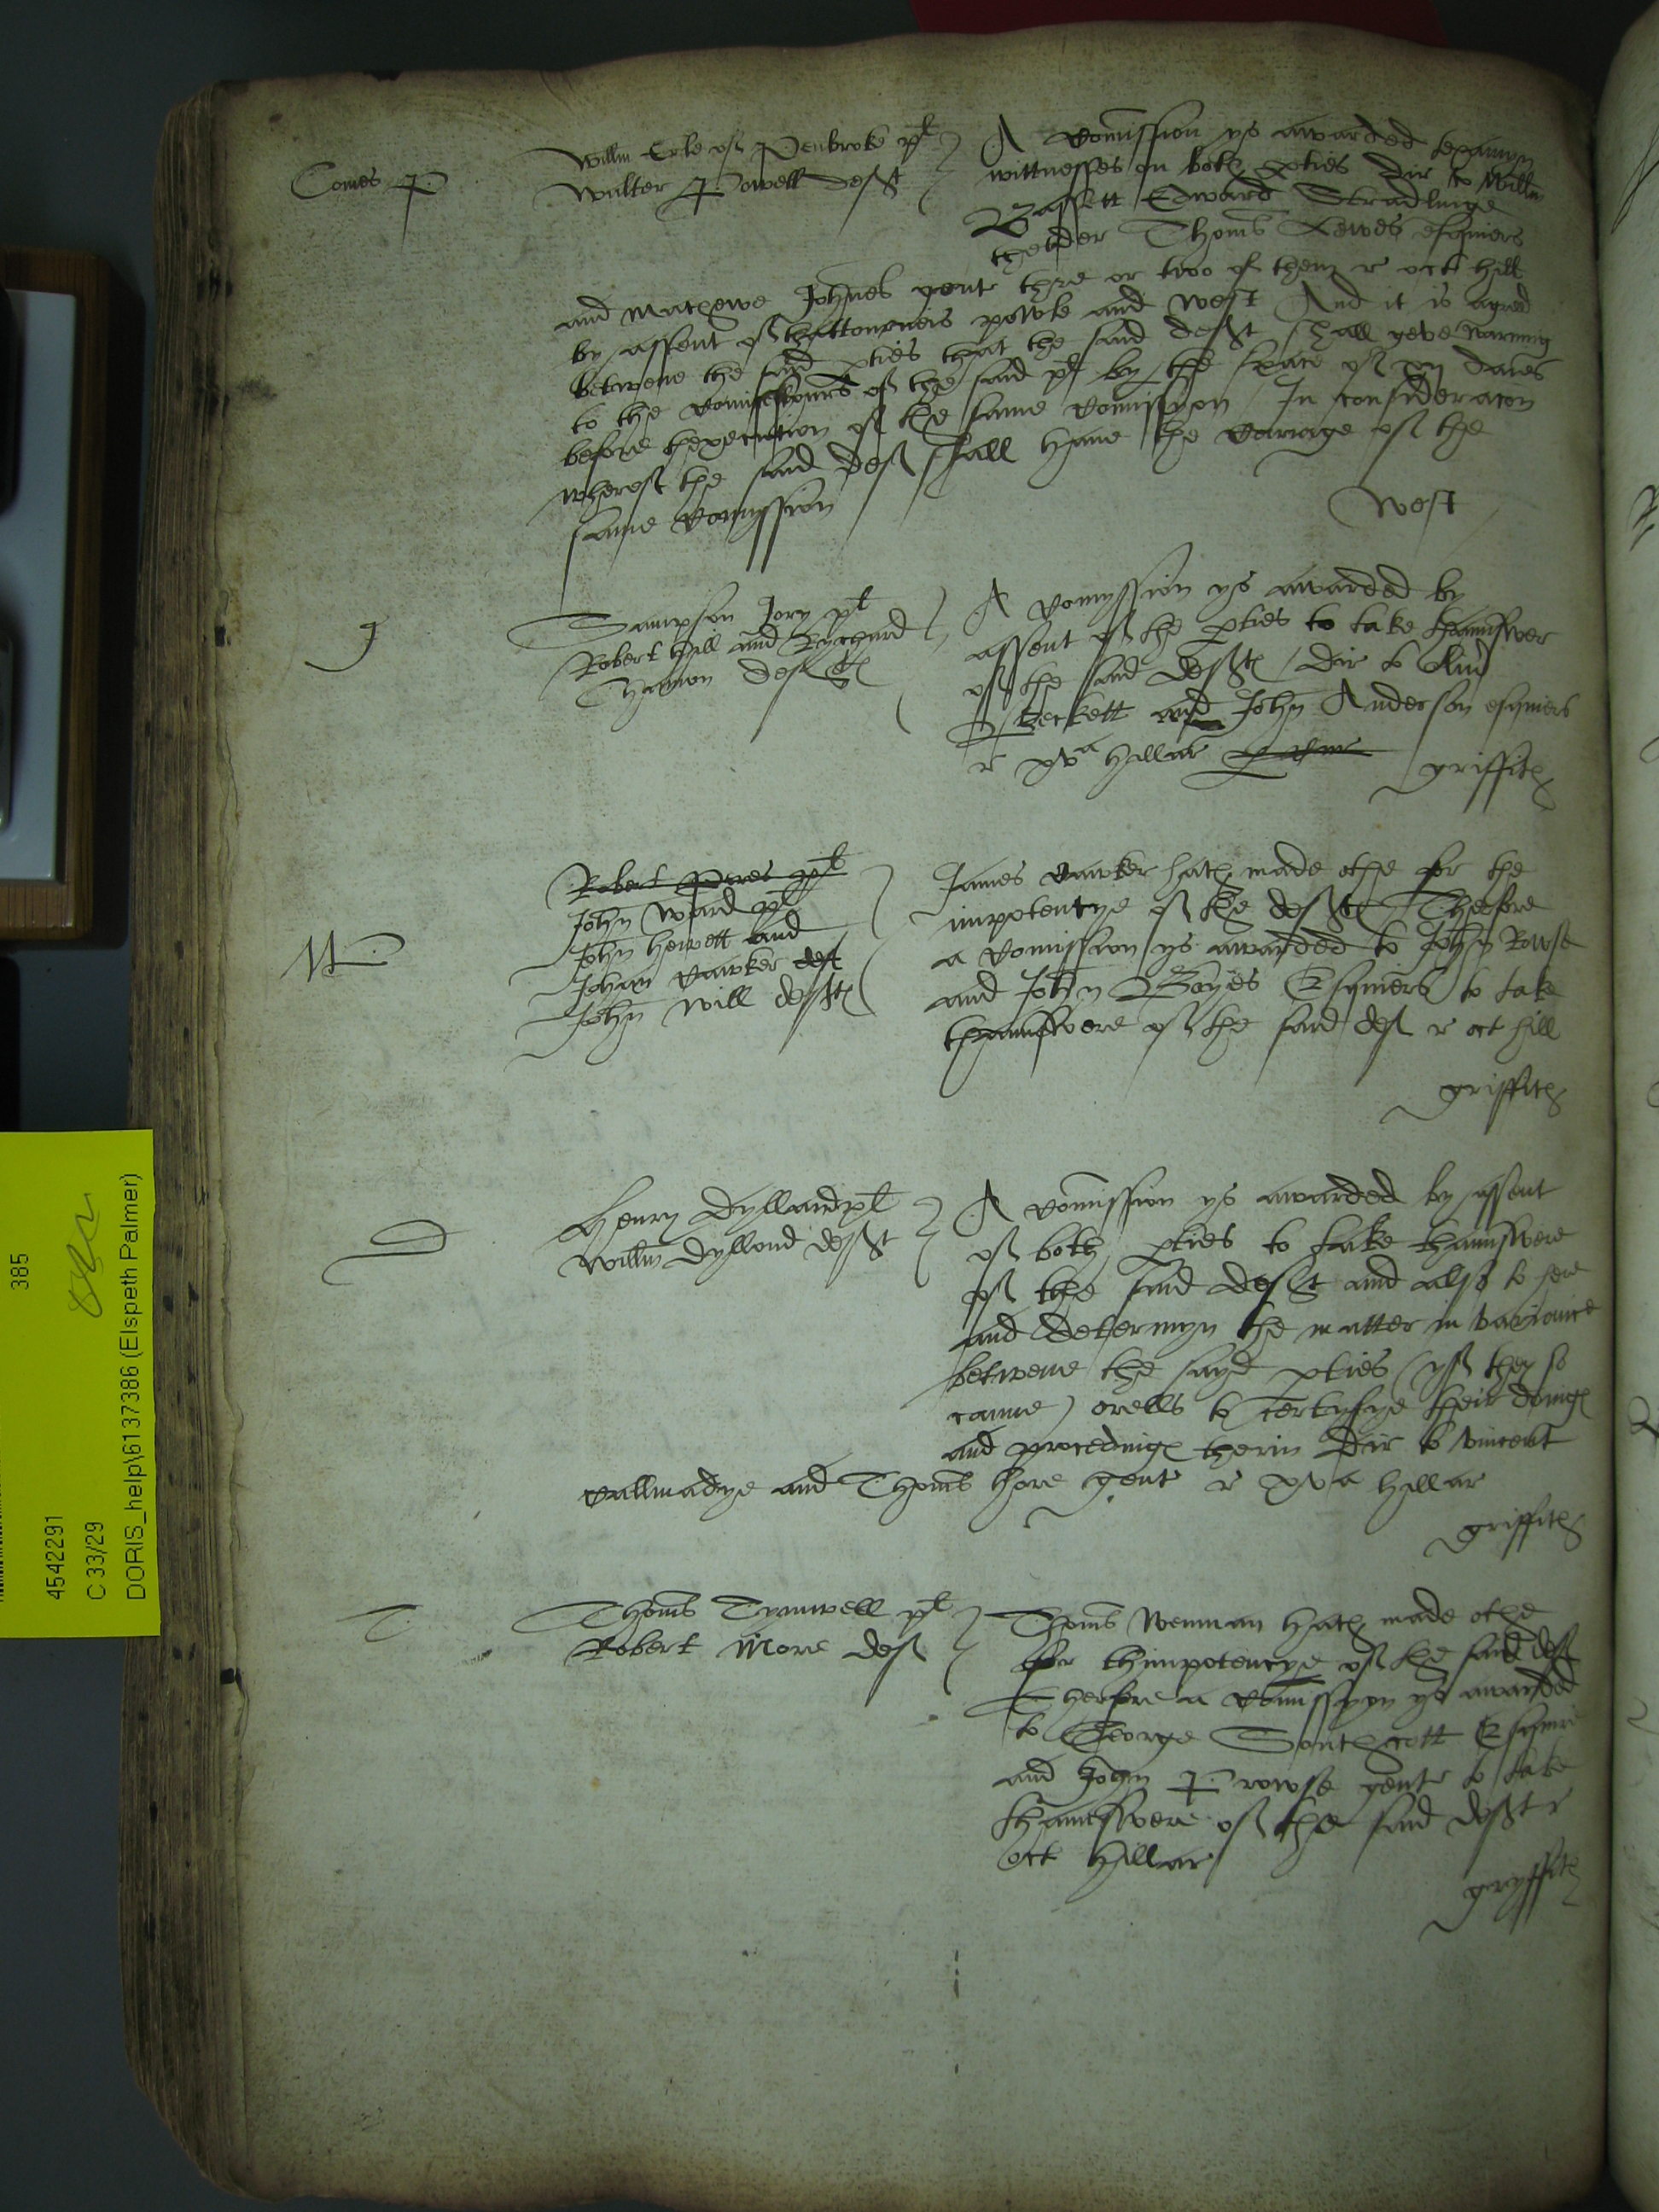 Comes P
Willm Erle of Penbroke pl
Walter Powell deft
A Comission ys awarded to examyn
wittnesses on both pties Dir to Willm
Bassett Edward Stradlinge
thelder Thoms Lewes esquiers
and Mathewe Johnes gent thre or two of them r oct hill
by assent of thattourneis powle and West And it is agreed
betwene the said pties that the said deft shall geve warning
to the Comissioners of the said pl by the space of daies
before thexecution of the same Comission In consideracon
wherof the said def shall have the Cariage of the
same Comyssion
West
J
Sampson Jory pl
Robert Hill and Rychard
Hamon defts
A Comyssion ys awarded by
assent of the pties to take thannswer
of the said defts Dir to
Beckett and John Anderson esquiers
r xva Hillar
griffith
W
Robert Peres pl
John Ward pl
John Hewett and
Johan Cawker def
John Will defts
James Cawker hath made othe for the
impotencye of the defts Therfore
a Comission ys awarded to John Rowse
and John Boyes Esquiers to take
thannswere of the said def r oct hill
griffith
D
Henry Dylland pl
Willm Dyllond deft
A Comission ys awarded by assent
of both pties to take thannswere
of the said deft and also to here
and determyn the matter in variance
betwene the sayd pties (yf they so
canne) orells to certyfye their doings
and procedings therin Dir to Vincent
Callmadye and Thoms Hore gent r xva Hillar
griffith
T
Thoms Tymwell pl
Robert More def
Thoms Wenman hath made othe
for thimpotencye of the said deft
Therfore a Comissyon ys awarded
to George Southcott Esquier
and John Prowse gent to take
thannswere of the said deft r
oct Hillar
gryffith
385
4542291
C 33/29
DORIS_help\6137386 (Elspeth Palmer)